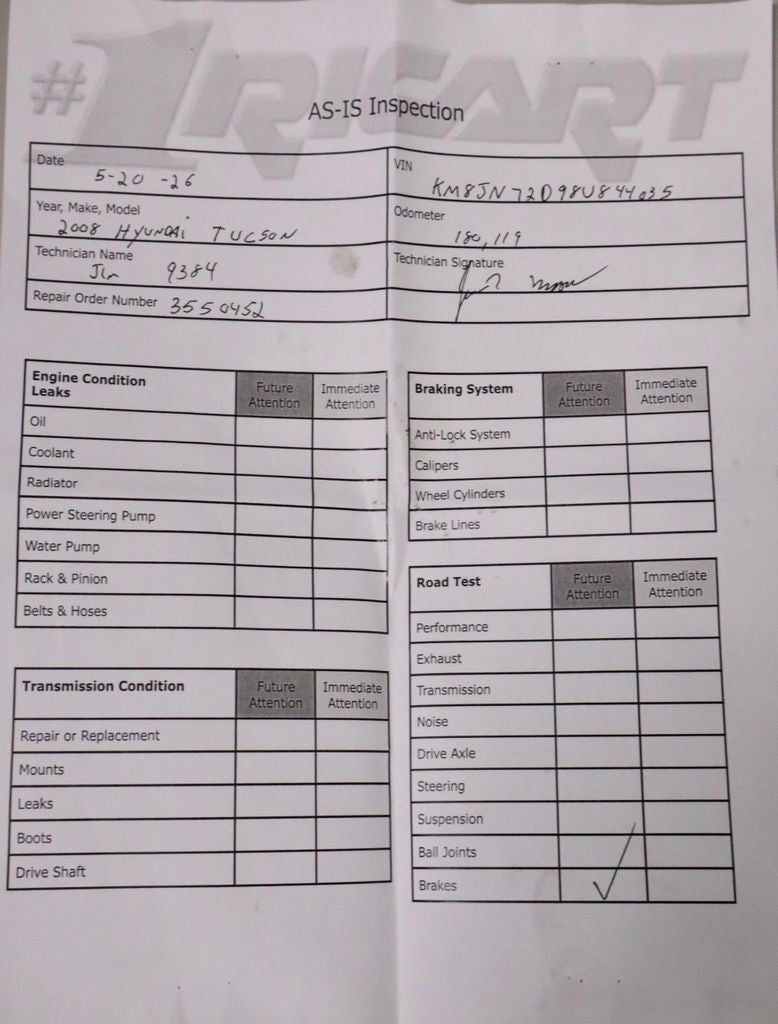 #1 RICART
AS-IS Inspection
Date
5-20-26
VIN
KM8JN72D98U844035
Year, Make, Model
2008 HYUNDAI TUCSON
Odometer
180,119
Technician Name
Jim 9384
Technician Signature
Repair Order Number 3550452
Engine Condition
Leaks
Future
Attention
Immediate
Attention
Oil
Coolant
Radiator
Power Steering Pump
Water Pump
Rack & Pinion
Belts & Hoses
Transmission Condition
Future
Attention
Immediate
Attention
Repair or Replacement
Mounts
Leaks
Boots
Drive Shaft
Braking System
Future
Attention
Immediate
Attention
Anti-Lock System
Calipers
Wheel Cylinders
Brake Lines
Road Test
Future
Attention
Immediate
Attention
Performance
Exhaust
Transmission
Noise
Drive Axle
Steering
Suspension
Ball Joints
Brakes ✓